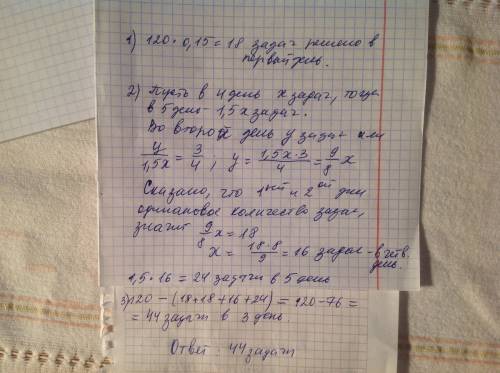 1) 120 · 0,15 = 18 задач решено в
первый день.
2) Пусть в 4 день x задач, тогда
в 5 день - 1,5x задач.
Во второй день y задач или
y/1,5x = 3/4 , y = 1,5x·3/4 = 9/8 x
Сказано, что 1ый и 2ой дни
одинаковое количество задач,
значит 9/8 x = 18
x = 18·8/9 = 16 задач - в четв.
день.
1,5 · 16 = 24 задачи в 5 день
3) 120 - (18+18+16+24) = 120-76 =
= 44 задач в 3 день
Ответ: 44 задач